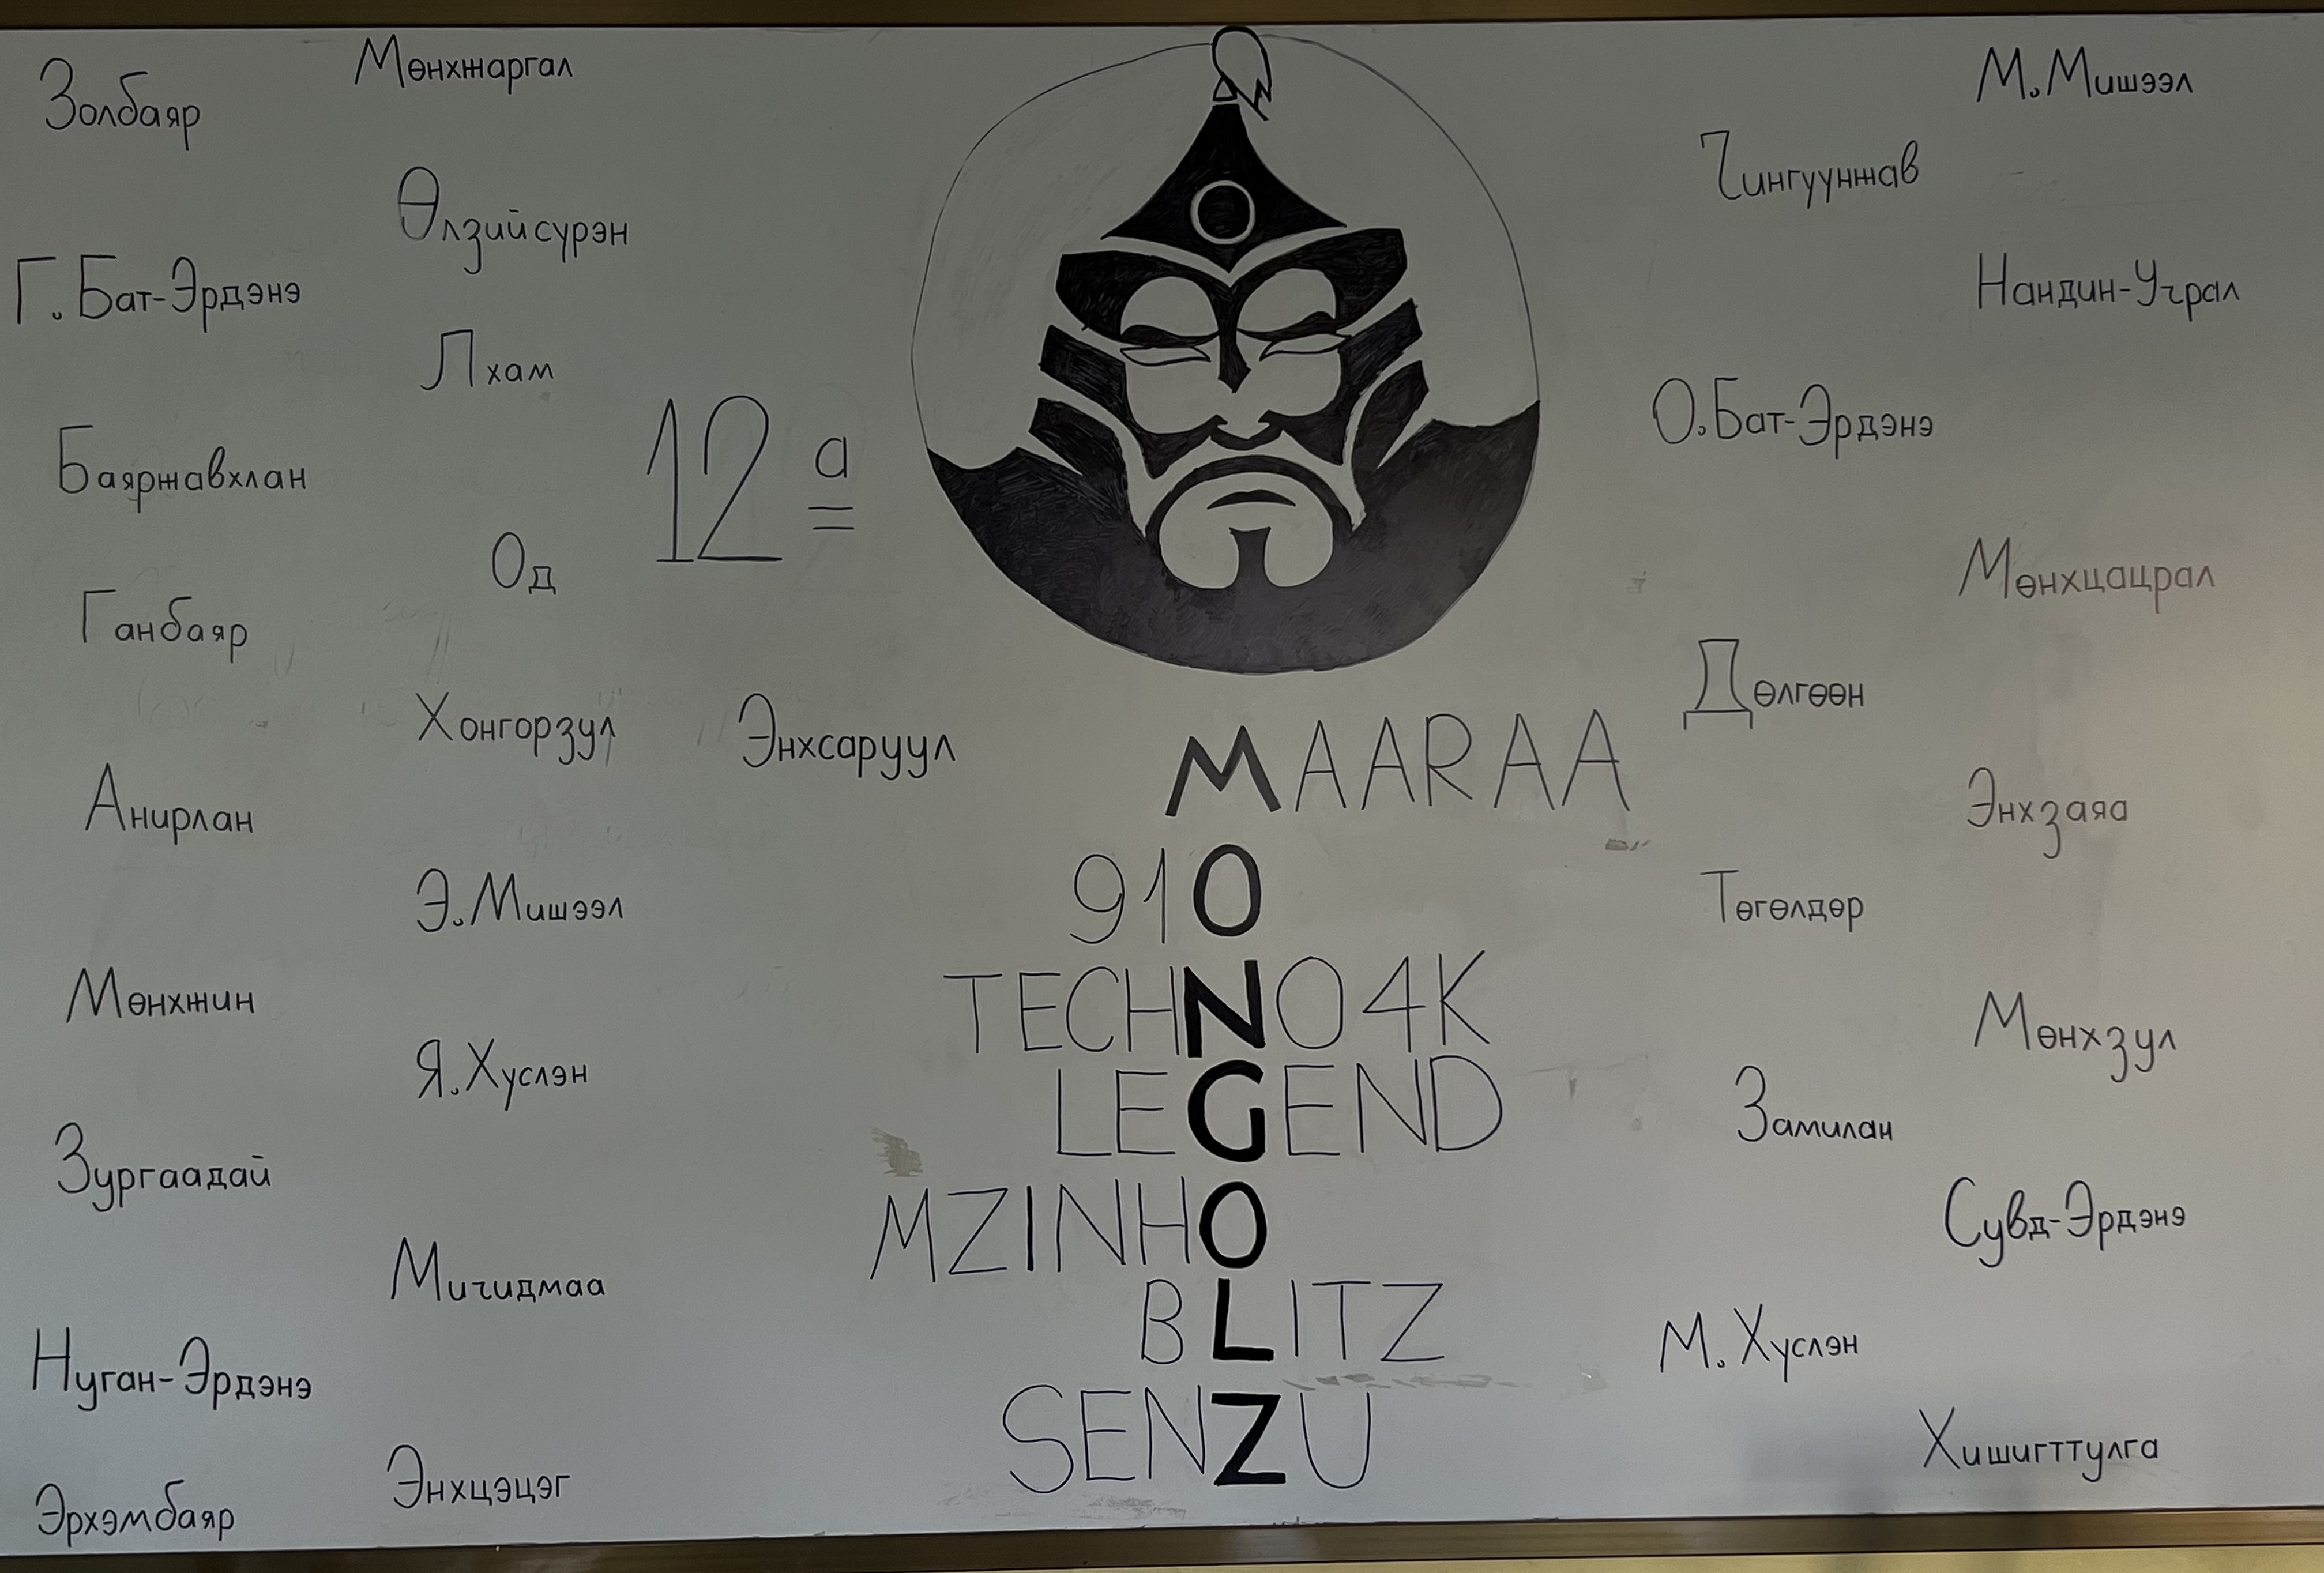 Золбаяр
Мөнхжаргал
Өлзийсүрэн
Г.Бат-Эрдэнэ
Лхам
Баяржавхлан
Од
12 а
Ганбаяр
Хонгорзул
Энхсаруул
Анирлан
Э.Мишээл
Мөнхжин
Я.Хүслэн
Зургаадай
Мичидмаа
Нуган-Эрдэнэ
Энхцэцэг
Эрхэмбаяр
MAARAA
910
TECHNO4K
LEGEND
MZINHO
BLITZ
SENZU
М.Мишээл
Чингуунжав
Нандин-Учрал
О.Бат-Эрдэнэ
Мөнхцацрал
Дөлгөөн
Энхзаяа
Төгөлдөр
Мөнхзул
Замилан
Сувд-Эрдэнэ
М.Хүслэн
Хишигттулга